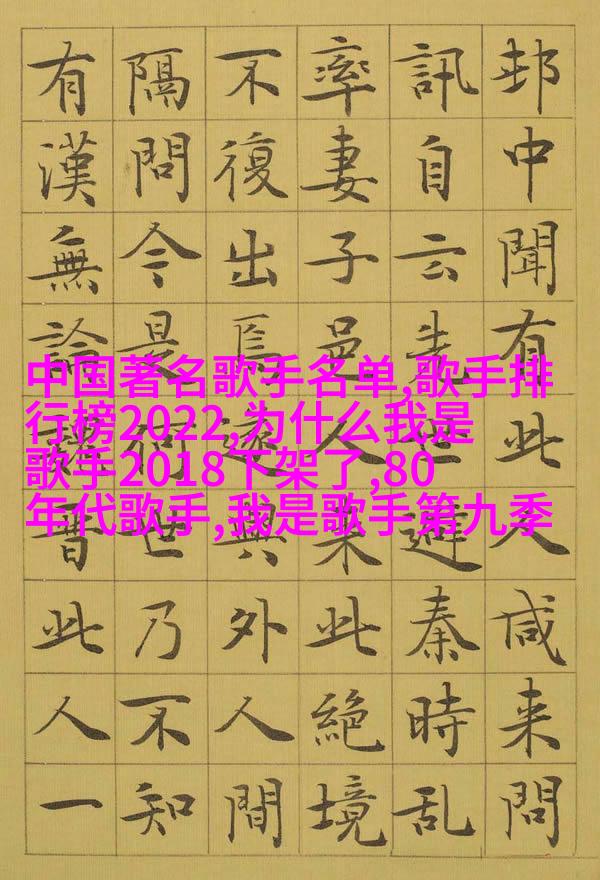 邨中聞有此人咸来問
訊自云先世避秦時乱
率妻子邑人来此絶境
不復出焉遂與外人間
隔問今是何世乃不知
有漢無論魏晉此人一
中国著名歌手名单,歌手排
行榜2022,为什么我是
歌手2018下架了,80
年代歌手,我是歌手第九季